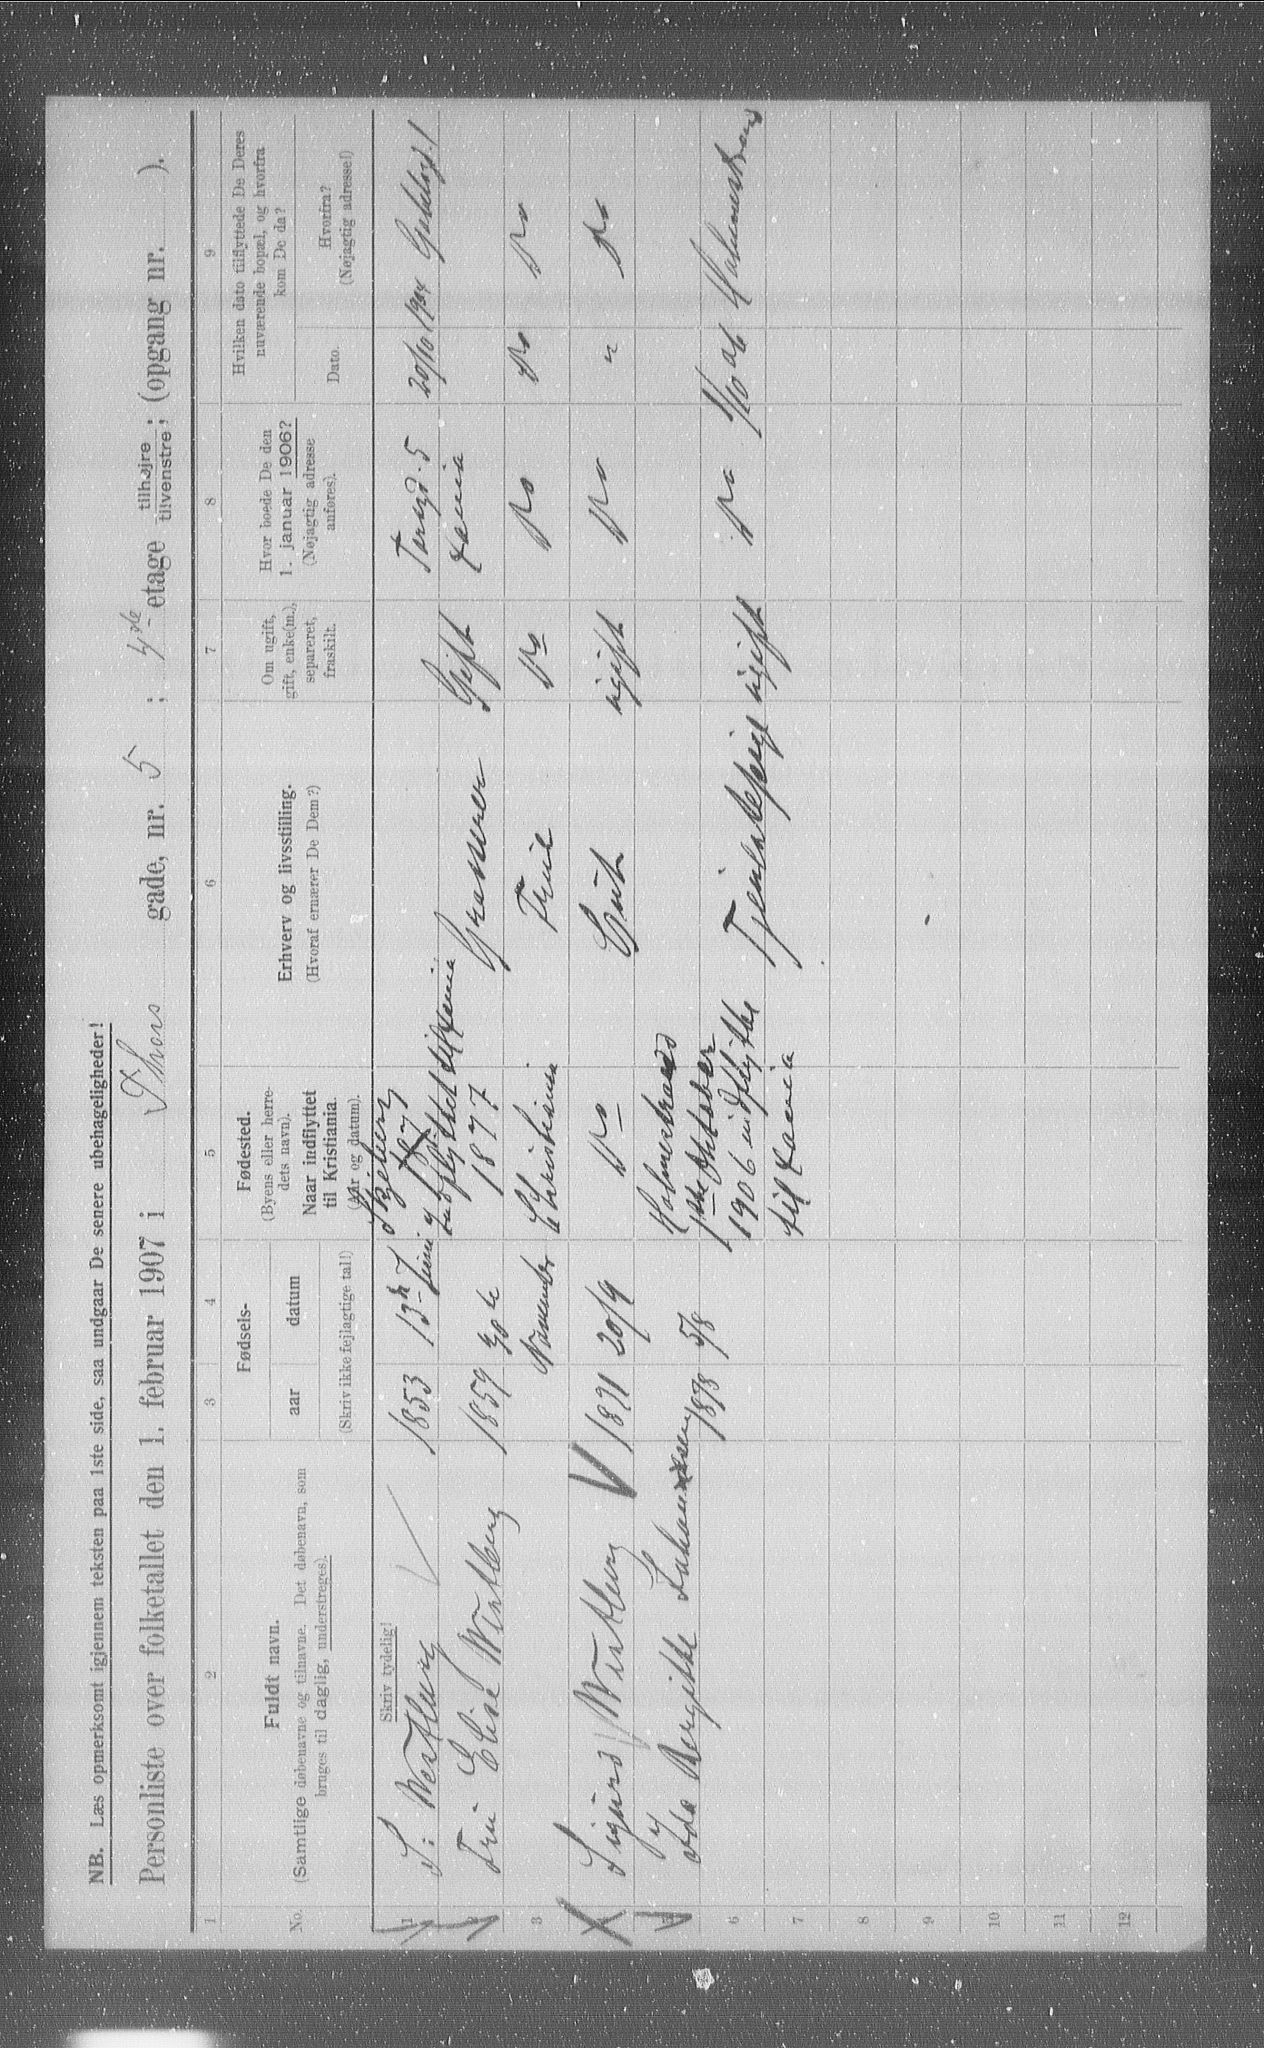 NB. Læs opmerksomt igjennem teksten paa 1ste side, saa undgaar De senere ubehageligheder!
Personliste over folketallet den 1. februar 1907 i Thors gade, nr. 5 ; 4de etage tilhøjre tilvenstre ; (opgang nr. ).
1 2 3 4 5 6 7 8 9
No.
Fuldt navn.
(Samtlige døbenavne og tilnavne. Det døbenavn, som
bruges til daglig, understreges).
Fødsels-
aar datum
(Skriv ikke fejlagtige tal!)
Fødested.
(Byens eller herre-
dets navn).
Naar indflyttet
til Kristiania.
(Aar og datum).
Erhverv og livsstilling.
(Hvoraf ernærer De Dem?)
Om ugift,
gift, enke(m.),
separeret,
fraskilt.
Hvor boede De den
1. januar 1906?
(Nøjagtig adresse
anføres).
Hvilken dato tilflyttede De Deres
nuværende bopæl, og hvorfra
kom De da?
Dato.
Hvorfra?
(Nøjagtig adresse!)
Skriv tydelig!
1 S: Westberg 1853 13de Juni Skjeberg
indflyttet til Xania 1877 Graverer Gift Torsgd. 5 Xania 20/10 1904
2 Fru Elise Westberg 1859 30te November Christiania Frue Do Do Do Do
3
4 Sigurd Westberg 1891 20/9 Do Gut ugift Do " Do
5 Ida Bergitte Johannesen 1878 5/8 Holmestrand
1ste Oktober
1906 indflytte
til Xania
Tjenestepige ugift Do 1/10 06 Holmestrand
6
7
8
9
10
11
12